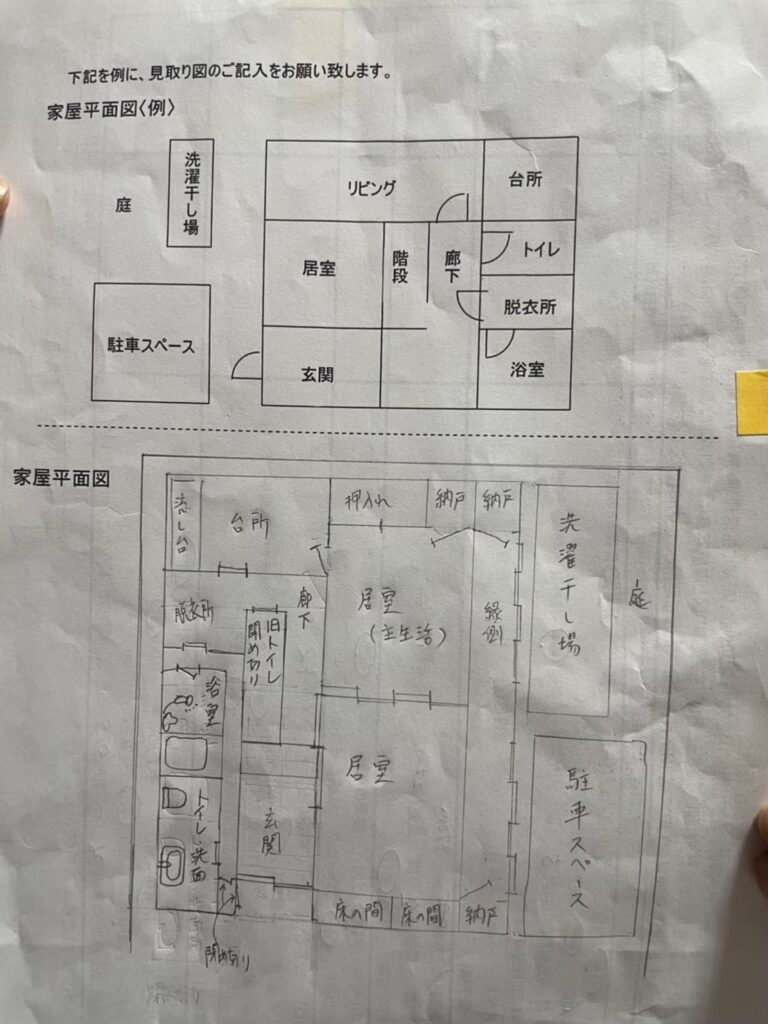 下記を例に、見取り図のご記入をお願い致します。
家屋平面図〈例〉
洗濯干し場
庭
リビング
台所
居室
階段
廊下
トイレ
脱衣所
駐車スペース
玄関
浴室
家屋平面図
流し台
台所
押入れ
納戸
納戸
洗濯干し場
庭
脱衣所
旧トイレ
閉めきり
廊下
居室
(主生活)
縁側
浴室
居室
駐車スペース
トイレ、洗面
玄関
床の間
床の間
納戸
閉め切り